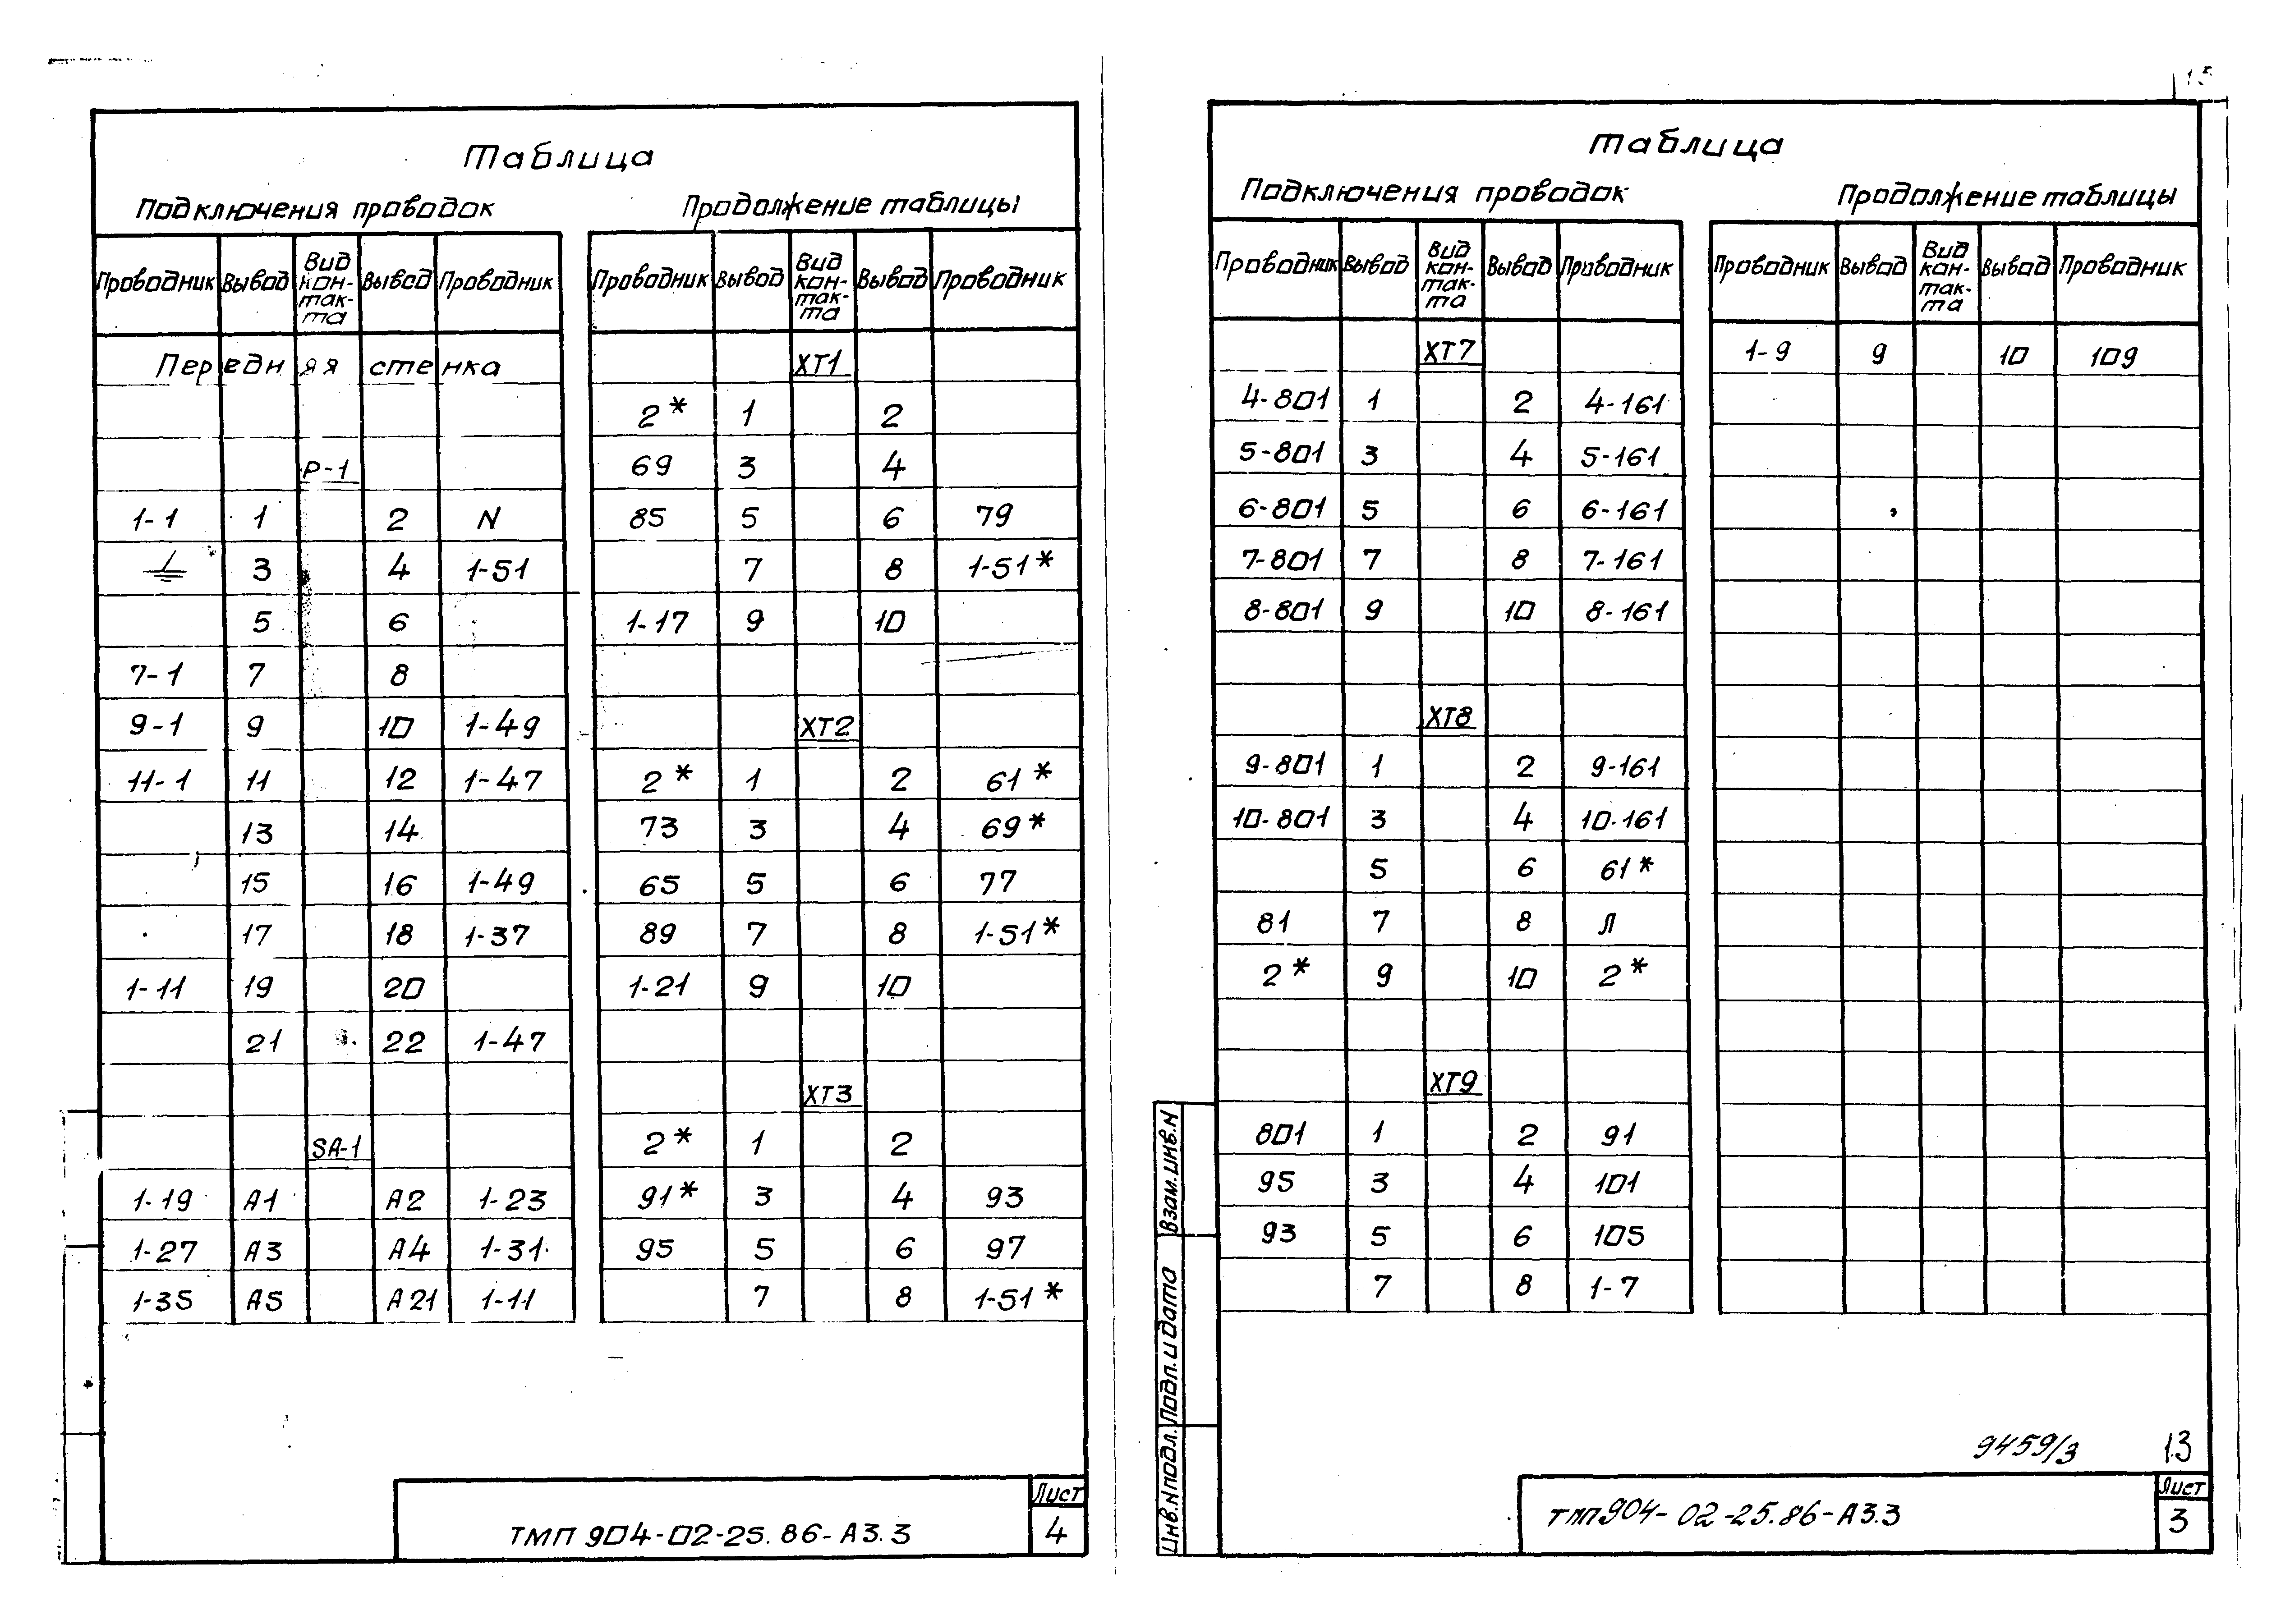 Таблица
Подключения проводок
Продолжение таблицы
Проводник Вывод Вид кон-такта Вывод Проводник
Передняя стенка
Р-1
1-1 1 2 N
3 4 1-51
5 6
7-1 7 8
9-1 9 10 1-49
11-1 11 12 1-47
13 14
15 16 1-49
17 18 1-37
1-11 19 20
21 22 1-47
SA-1
1-19 А1 А2 1-23
1-27 А3 А4 1-31
1-35 А5 А21 1-11
Проводник Вывод Вид кон-такта Вывод Проводник
ХТ1
2* 1 2
69 3 4
85 5 6 79
7 8 1-51*
1-17 9 10
ХТ2
2* 1 2 61*
73 3 4 69*
65 5 6 77
89 7 8 1-51*
1-21 9 10
ХТ3
2* 1 2
91* 3 4 93
95 5 6 97
7 8 1-51*
ТМП 904-02-25.86-А3.3
Лист
4
15
Таблица
Подключения проводок
Продолжение таблицы
Проводник Вывод Вид кон-так-та Вывод Проводник
ХТ7
4-801 1 2 4-161
5-801 3 4 5-161
6-801 5 6 6-161
7-801 7 8 7-161
8-801 9 10 8-161
ХТ8
9-801 1 2 9-161
10-801 3 4 10-161
5 6 61*
81 7 8 Л
2* 9 10 2*
ХТ9
801 1 2 91
95 3 4 101
93 5 6 105
7 8 1-7
Проводник Вывод Вид кон-так-та Вывод Проводник
1-9 9 10 109
Взам.инв.N
Подп.и дата
Инв.Nподл.
9459/3
13
ТМП904-02-25.86-А3.3
Лист
3